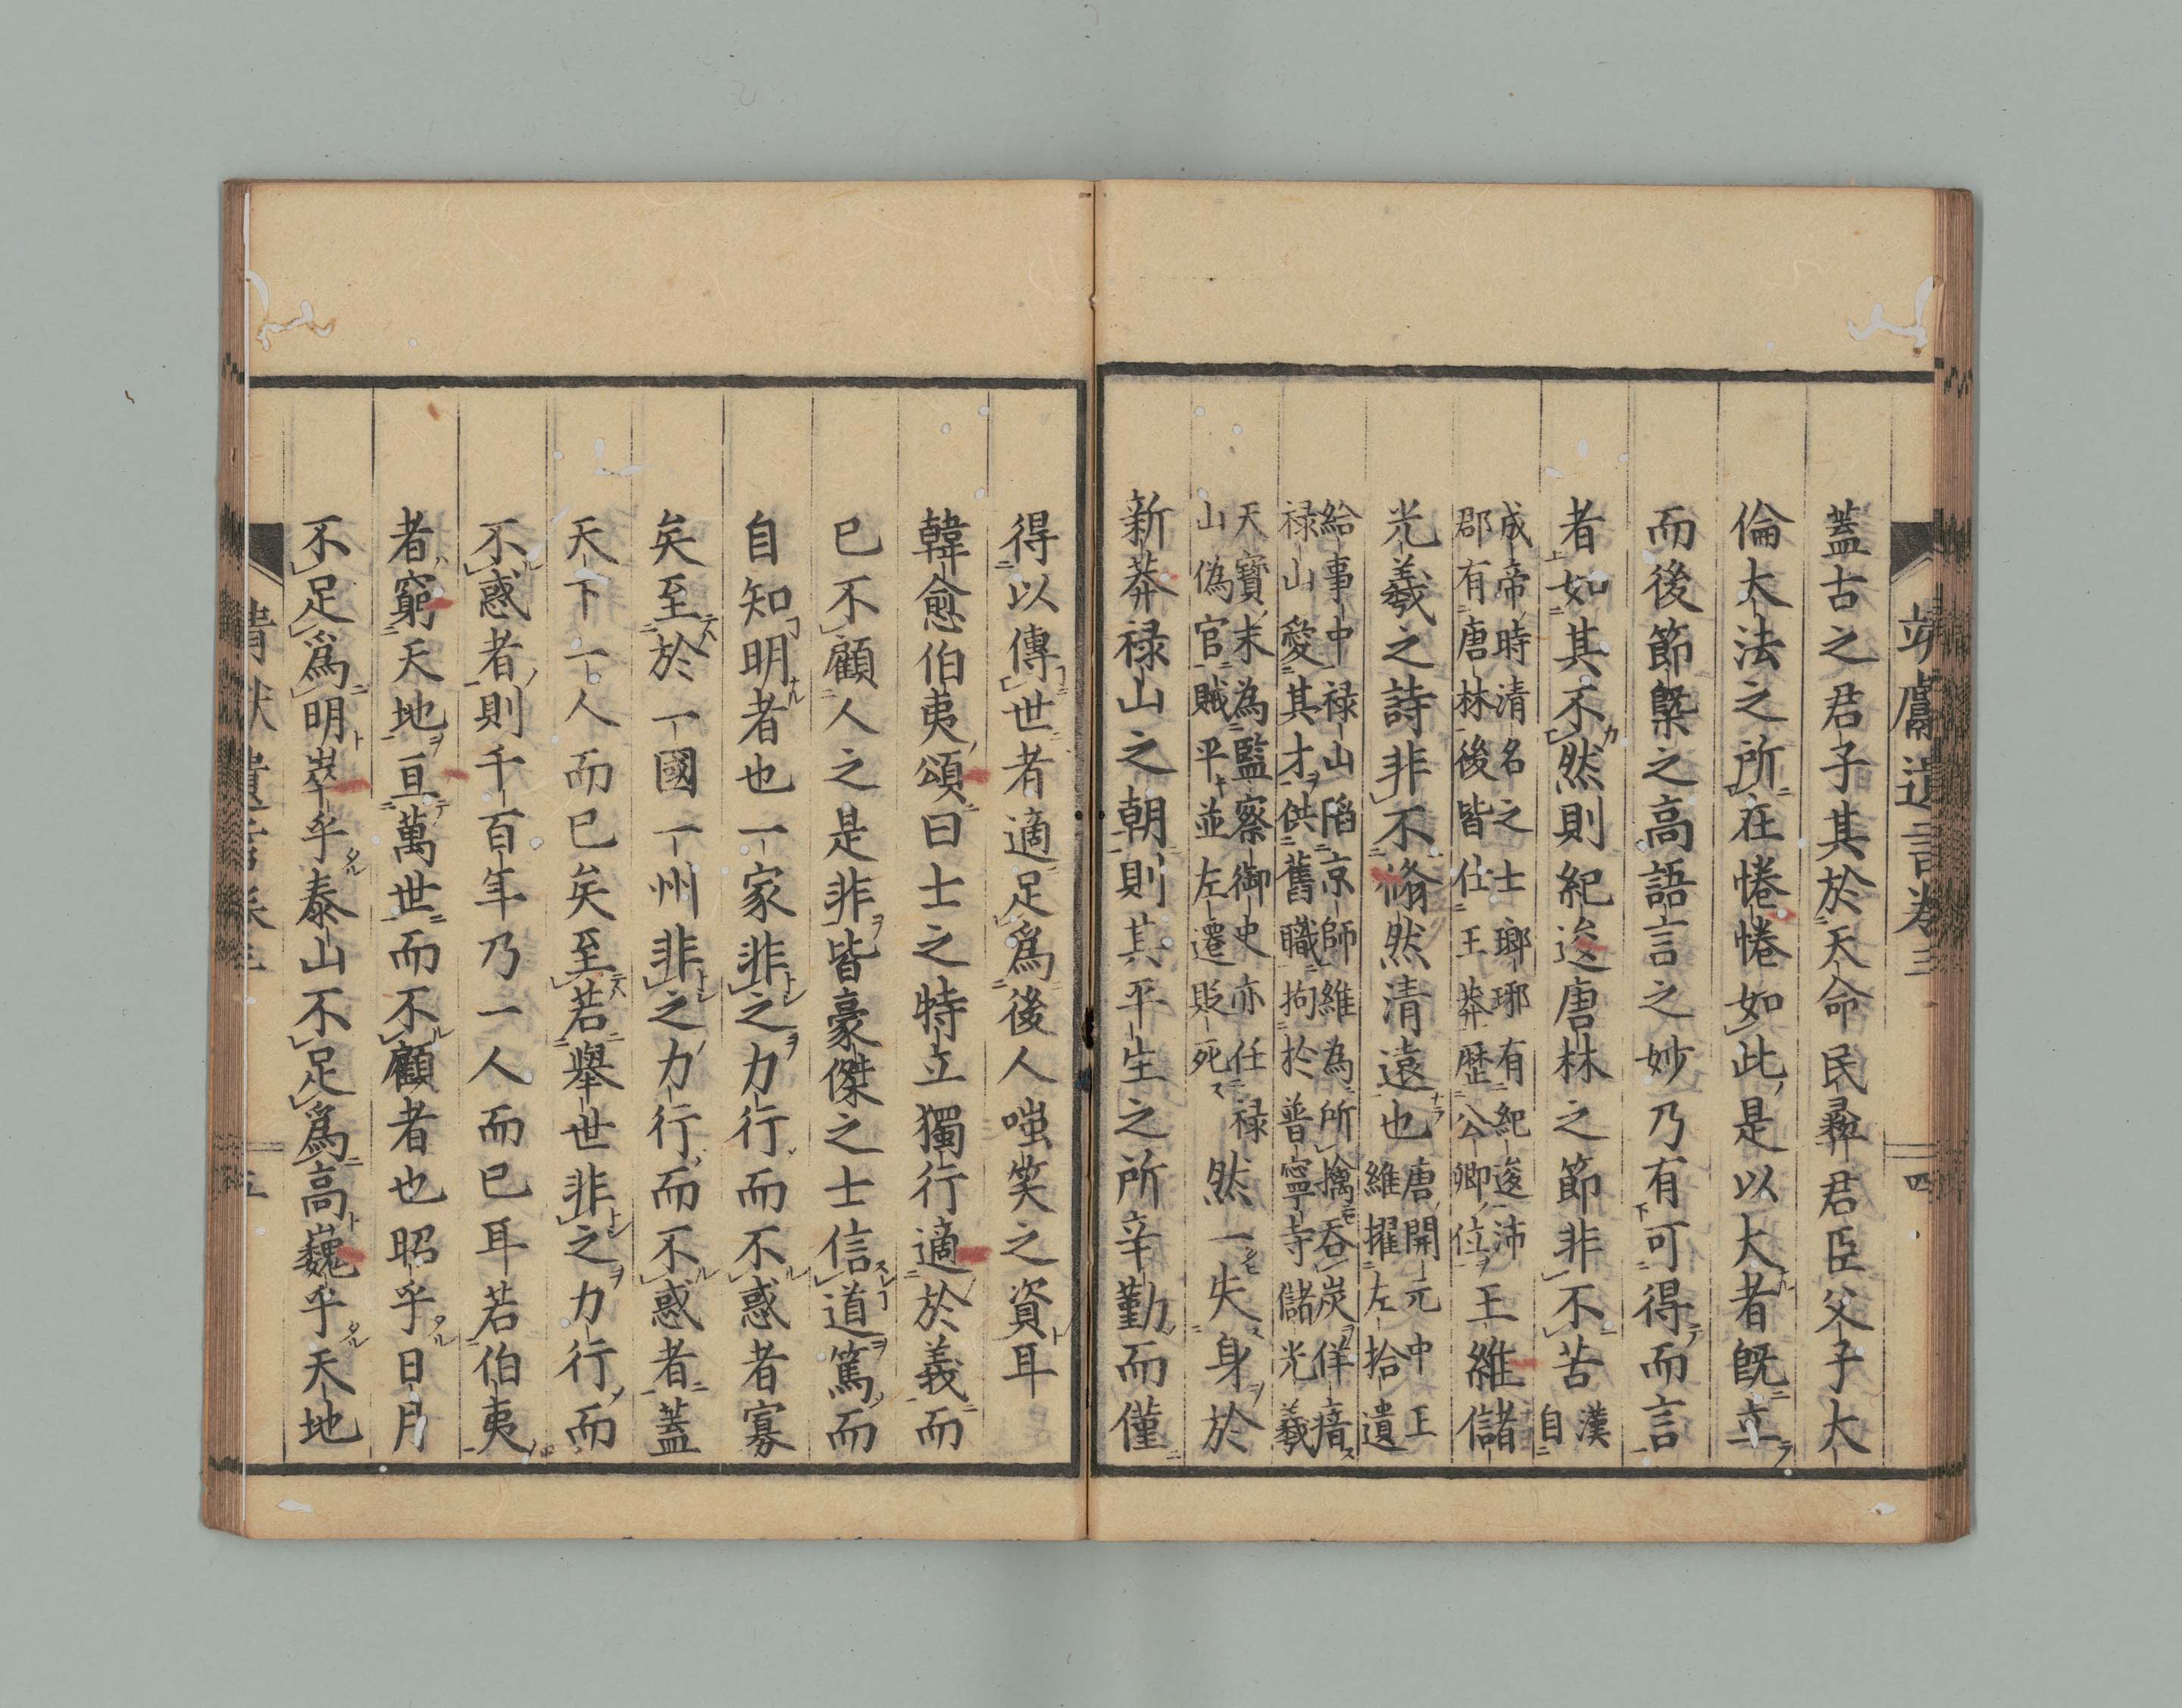 靖獻遺言卷三
四
蓋古之君子其於天命民彝君臣父子大
倫大法之所在惓惓如此是以大者既立
而後節槩之高語言之妙乃有可得而言
者如其不然則紀逡唐林之節非不苦漢
自
成帝時清名之士琅琊有紀逡沛
郡有唐林後皆仕王莽歷公卿位
王維儲
光羲之詩非不翛然清遠也
唐開元中王
維擢左拾遺
給事中祿山陷京師維為所擒吞炭佯瘖
祿山愛其才供舊職拘於普寧寺儲光羲
天寶末為監察御史亦任祿
山偽官賊平並左遷貶死
然一失身於
新莽祿山之朝則其平生之所辛勤而僅
得以傳世者適足爲後人嗤笑之資耳
韓愈伯夷頌曰士之特立獨行適於義而
已不顧人之是非皆豪傑之士信道篤而
自知明者也一家非之力行而不惑者寡
矣至於一國一州非之力行而不惑者蓋
天下一人而已矣至若舉世非之力行而
不惑者則千百年乃一人而已耳若伯夷
者窮天地亘萬世而不顧者也昭乎日月
不足爲明崒乎泰山不足爲高巍乎天地